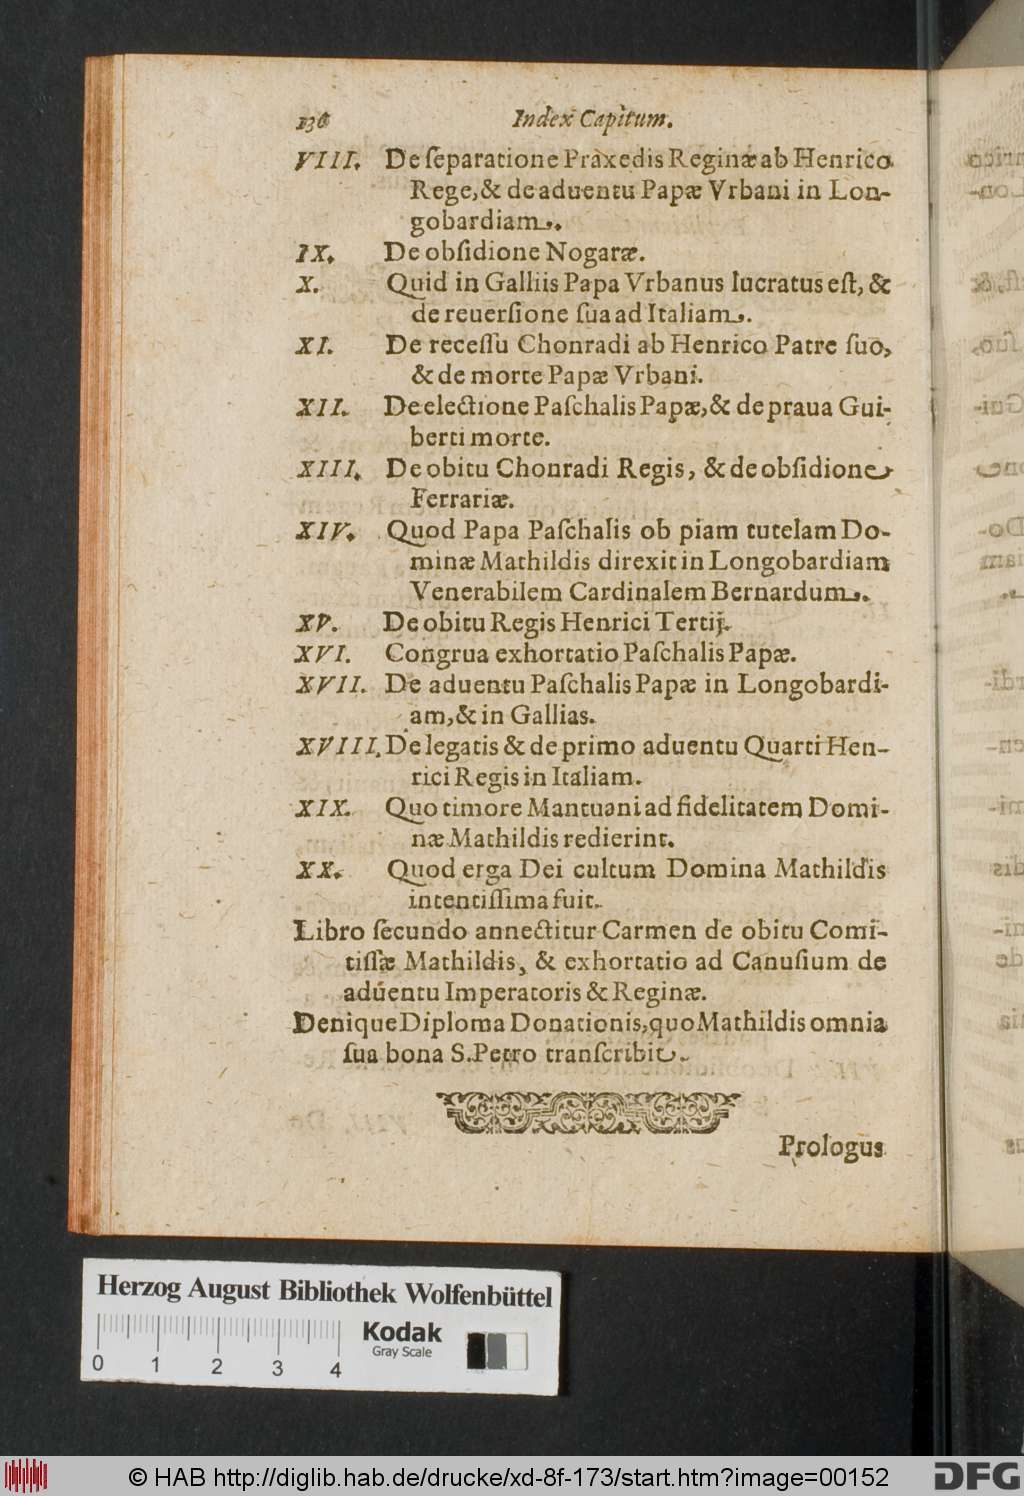 136 Index Capitum.
VIII. De ſeparatione Praxedis Reginæ ab Henrico
Rege, & de aduentu Papæ Vrbani in Lon-
gobardiam.
IX. De obſidione Nogaræ.
X. Quid in Galliis Papa Vrbanus lucratus eſt, &
de reuerſione ſua ad Italiam.
XI. De receſſu Chonradi ab Henrico Patre ſuo,
& de morte Papæ Vrbani.
XII. De electione Paſchalis Papæ, & de praua Gui-
berti morte.
XIII. De obitu Chonradi Regis, & de obſidione
Ferrariæ.
XIV. Quod Papa Paſchalis ob piam tutelam Do-
minæ Mathildis direxit in Longobardiam
Venerabilem Cardinalem Bernardum.
XV. De obitu Regis Henrici Tertij.
XVI. Congrua exhortatio Paſchalis Papæ.
XVII. De aduentu Paſchalis Papæ in Longobardi-
am, & in Gallias.
XVIII. De legatis & de primo aduentu Quarti Hen-
rici Regis in Italiam.
XIX. Quo timore Mantuani ad fidelitatem Domi-
næ Mathildis redierint.
XX. Quod erga Dei cultum Domina Mathildis
intentiſſima fuit.
Libro ſecundo annectitur Carmen de obitu Comi-
tiſſæ Mathildis, & exhortatio ad Canuſium de
aduentu Imperatoris & Reginæ.
Denique Diploma Donationis, quo Mathildis omnia
ſua bona S. Petro tranſcribit.
Prologus
Herzog August Bibliothek Wolfenbüttel
Kodak
Gray Scale
0 1 2 3 4
© HAB http://diglib.hab.de/drucke/xd-8f-173/start.htm?image=00152
DFG